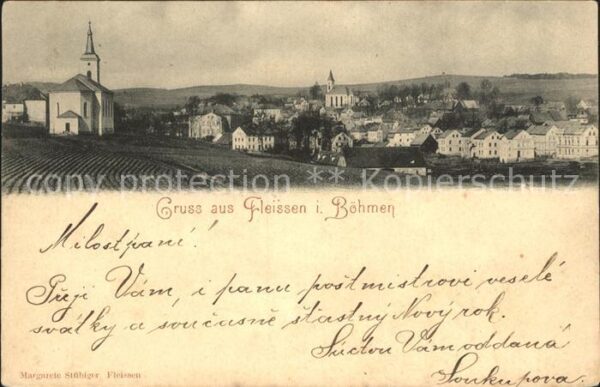 ** copyright protection ** Kopierschutz
Gruss aus Fleissen i. Böhmen
Milostpaní!
Přeji Vám, i panu poštmistrovi veselé
svátky a současně šťastný Nový rok.
S úctou Vám oddaná
Soukupova.
Margarete Stübiger, Fleissen